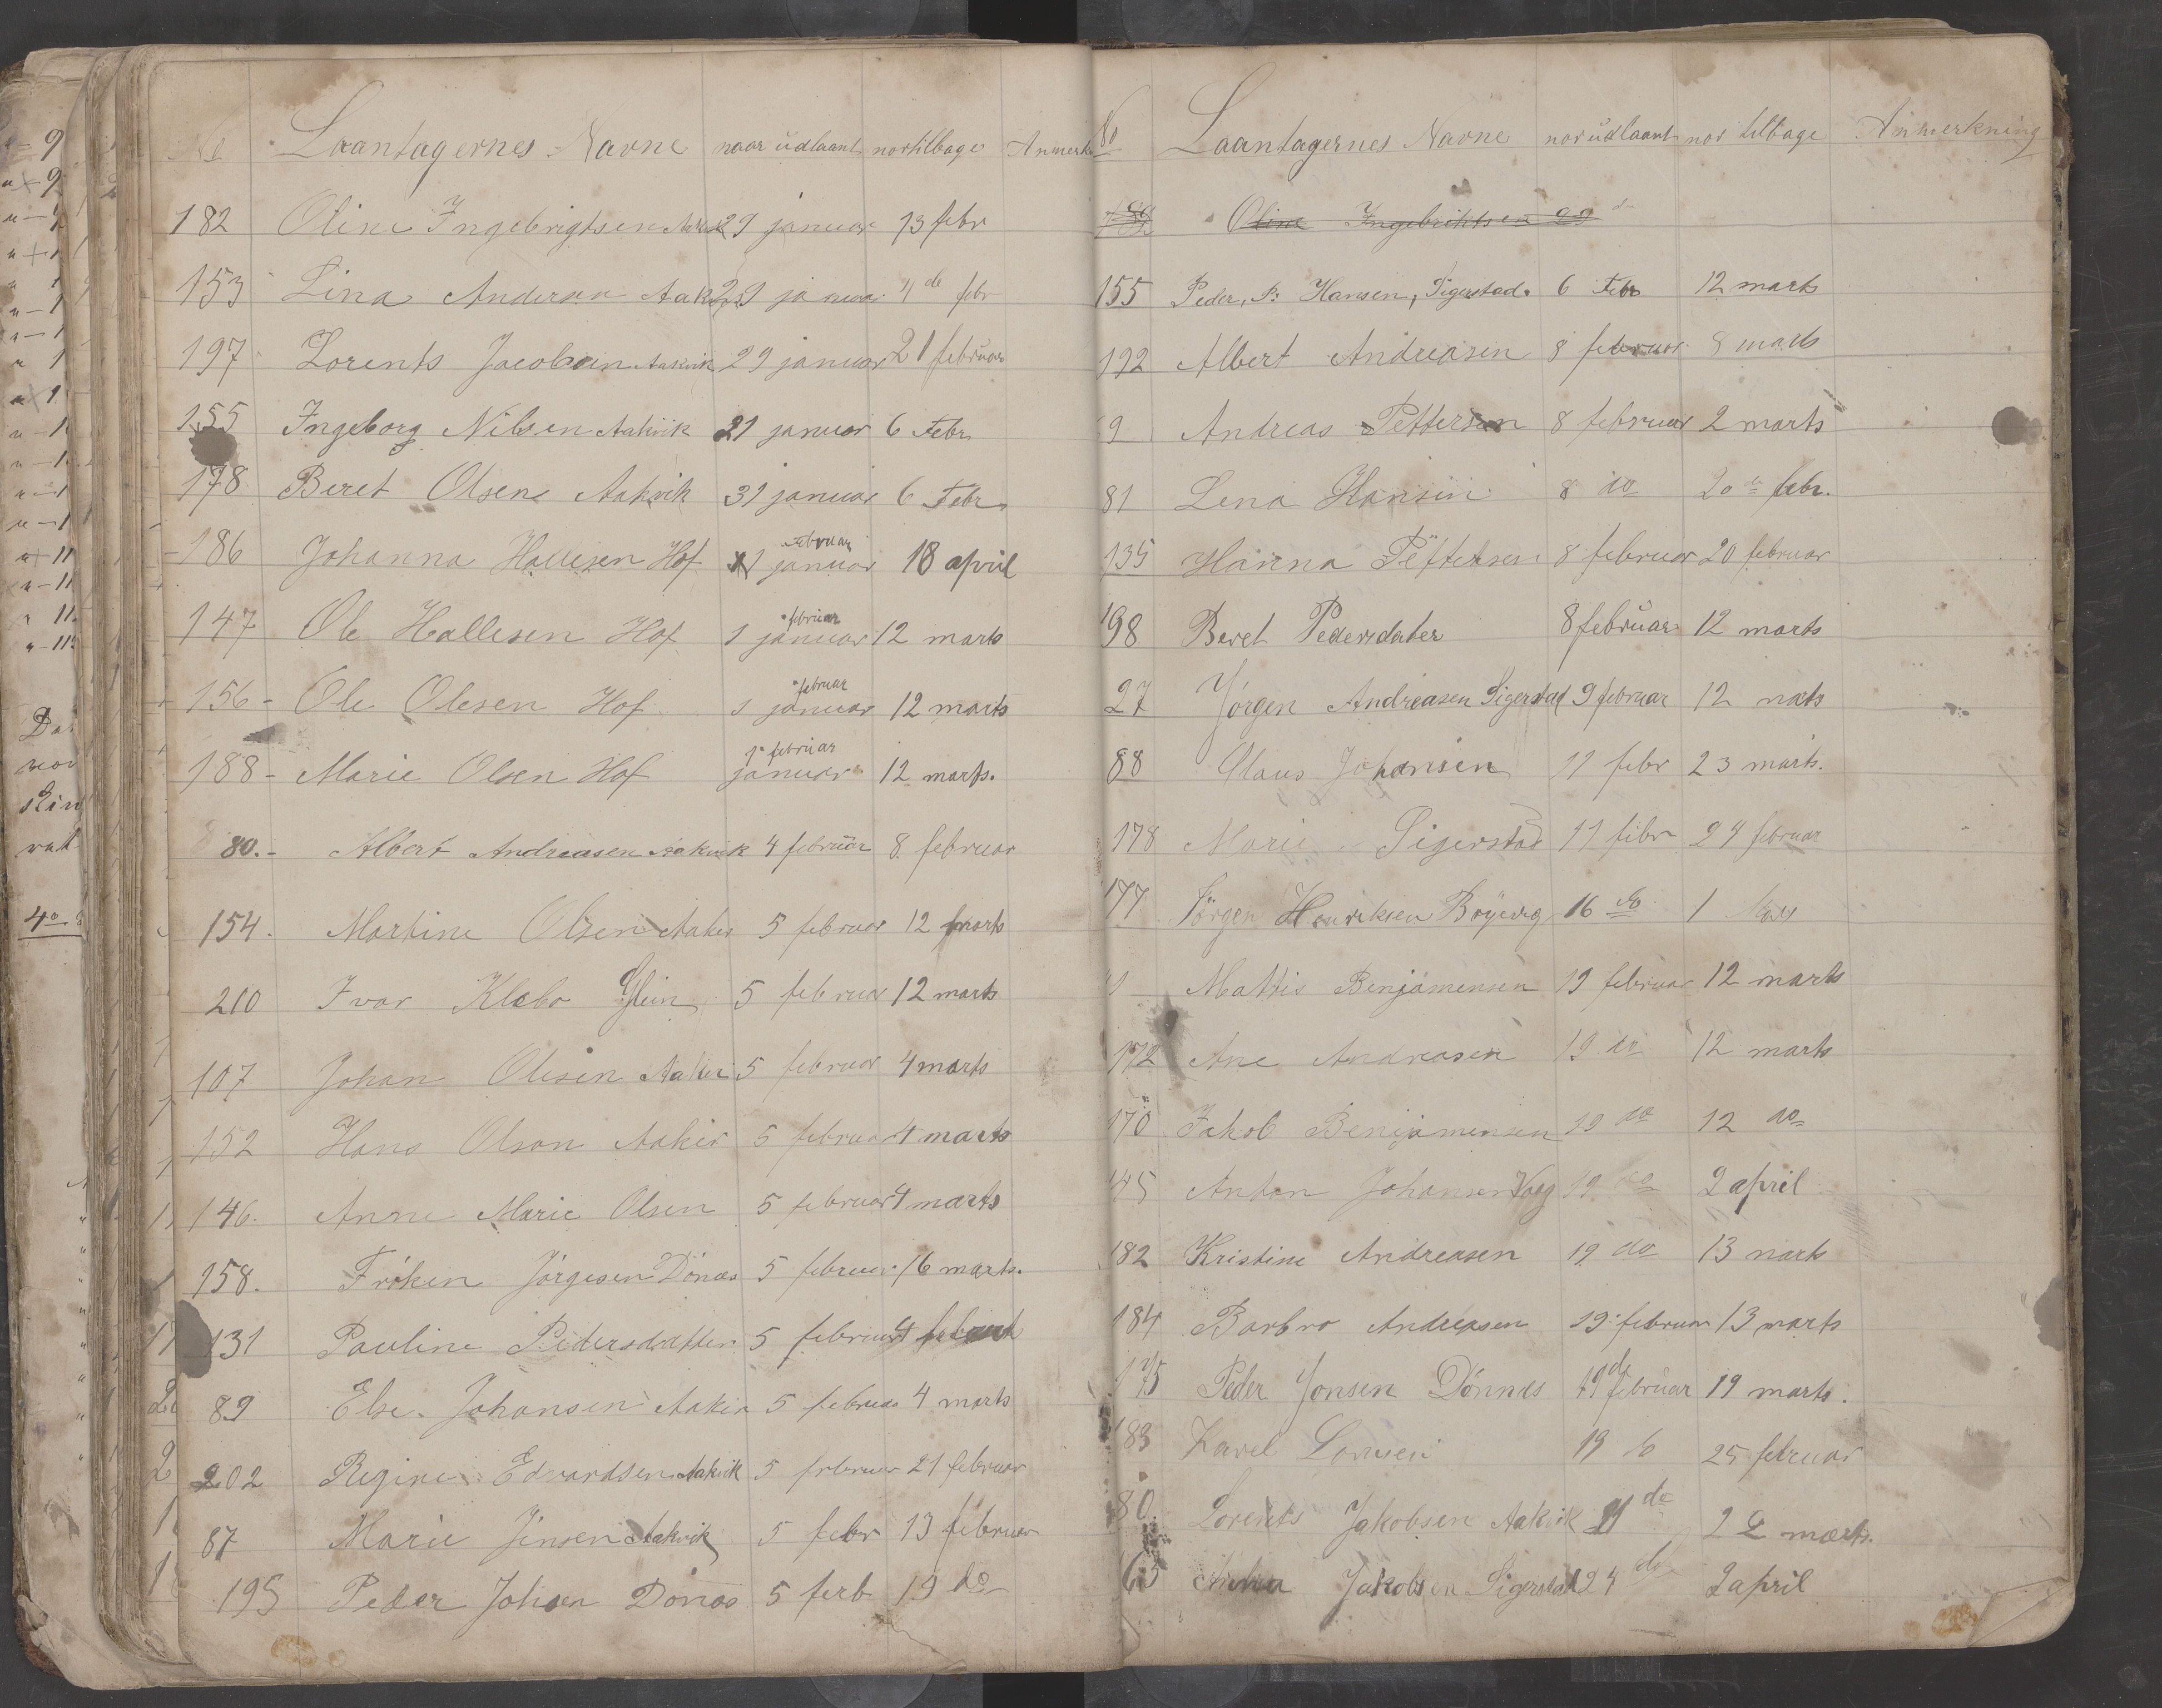 No Laantagernes Navne naar udlaant nor tilbage Anmerk
182 Oline Ingebrigtsen 29 januar 13 febr
153 Lina Andersen 29 januar 4 de febr
197 Lorents Jacobsen Aakvik 29 januar 21 februar
155 Ingeborg Nilsen Aakvik 31 januar 6 Febr
178 Beret Olsen Aakvik 31 januar 6 Febr
186 Johanna Hallesen Hof 1 januar februar 18 april
147 Ole Hallesen Hof 1 januar februar 12 marts
156 - Ole Olesen Hof 1 januar februar 12 marts
188 - Marie Olsen Hof 1 januar februar 12 marts.
80. - Albert Andreasen Aakvik 4 februar 8 februar
154. Martine Olsen Aakv 5 februar 12 marts
210 Ivar Klebo Glein 5 februar 12 marts
107 Johan Olesen Aakvi 5 februar 4 marts
152 Hans Olson Aakvi 5 februar 4 marts
146. Anne Marie Olsen 5 februar 4 marts
158. Fröken Jörgesen Dönas 5 februar 16 marts.
131 Pauline Pedersdatter 5 februar 4
89 Else. Johansen Aakvi 5 februar 4 marts
202 Regine Edvardsen Aakvik 5 februar 21 februar
87 Marie Jensen Aakvik 5 febr 13 februar
195 Peder Johsen Dönas 5 ferb 19 do
No Laantagernes Navne nor udlaant nor tilbage Anmerkning
182 Oline Ingebriktsen 29
155 Peder, P: Hansen, Sigerstad. 6 Febr 12 marts
192 Albert Andreasen 8 februar 8 marts
9 Andreas Pettersen 8 februar 2 marts
81 Lena Hansen 8 do 20 de febr.
135 Hanna Pettersen 8 februar 20 februar
198 Beret Pedersdater 8 februar 12 marts
27 Jörgen Andreasen Sigerstad 9 februar 12 mats
88 Claus Johansen 11 febr 23 marts.
178 Marie Sigerstad 11 febr 24 februar
177 Jörgen Henriksen 16 do 1
Mattis Benjamensen 19 februar 12 marts
172 Ane Andreasen 19 do 12 marts
170 Jakob Benjamensen 19 do 12 do
45 Anton Johansen Vaag 19 do 2 april
182 Kristine Andreasen 19 do 13 marts
184 Barbro Andreasen 19 februar 13 marts
175 Peder Jonsen Dönnes 19 de februar 19 marts.
183 Karel 19 25 februar
80 Lorents Jakobsen Aakvik 21 do 22 marts.
65 Jakobsen Sigerstad 24 do 2 april